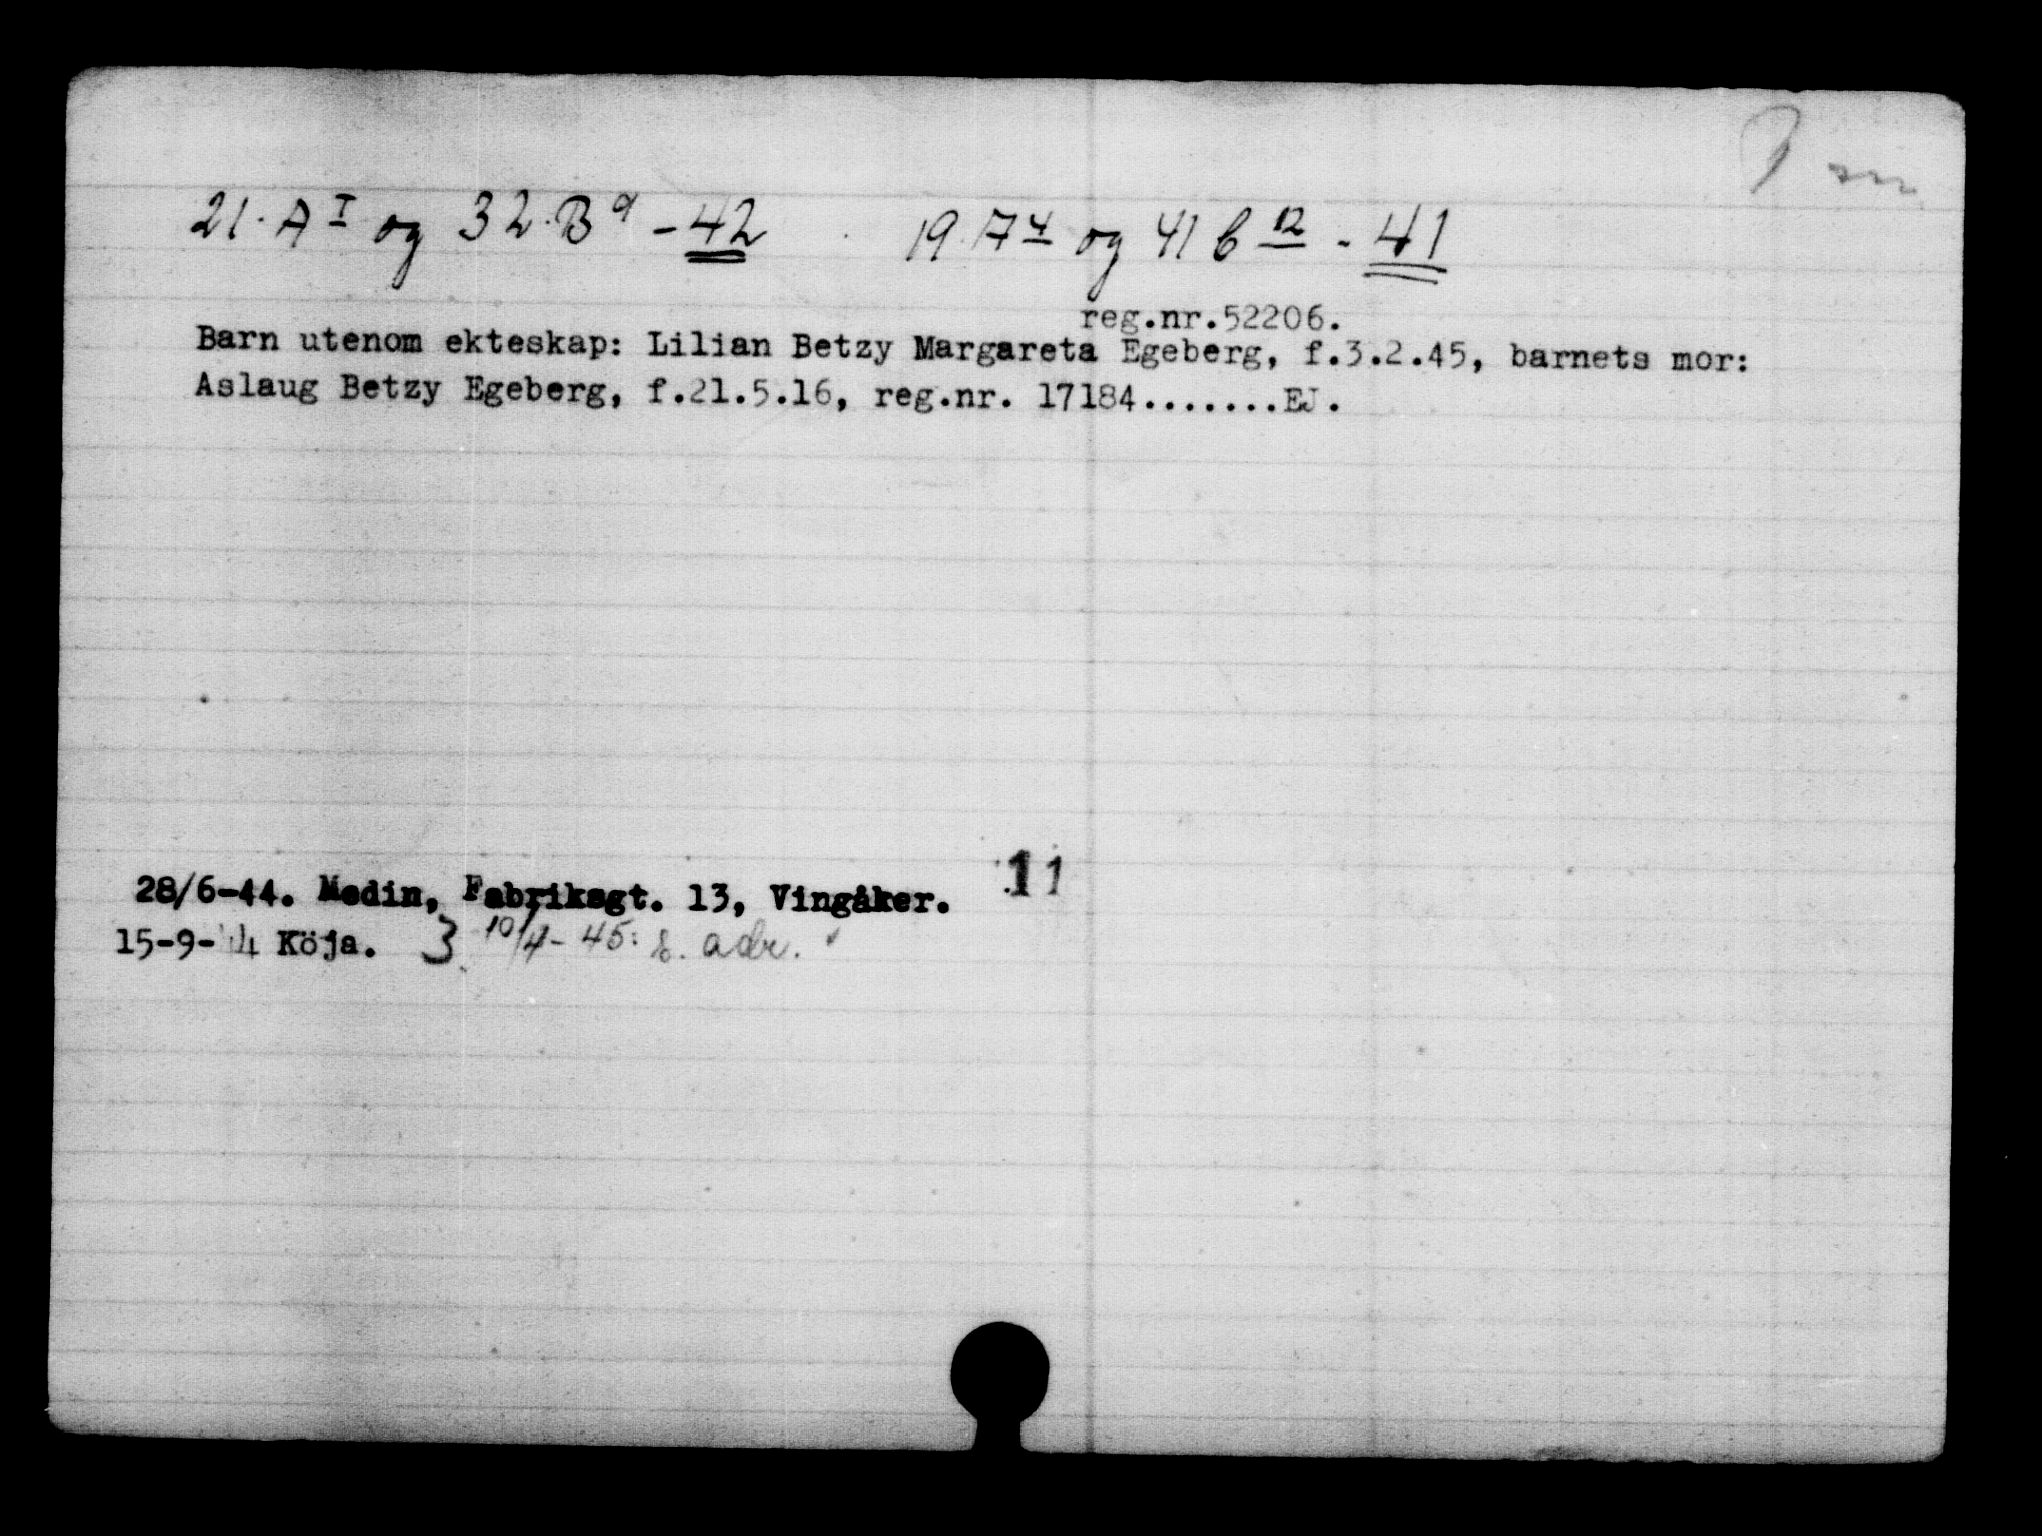 21. A I og 32. B a - 42 19. A 4 og 41 b 12 - 41
reg.nr.52206.
Barn utenom ekteskap: Lilian Betzy Margareta Egeberg, f.3.2.45, barnets mor:
Aslaug Betzy Egeberg, f.21.5.16, reg.nr. 17184.......EJ.
11
28/6-44. Medin, Fabriksgt. 13, Vingåker.
15-9-44 Köja. 3 10/4-45: s. adr.